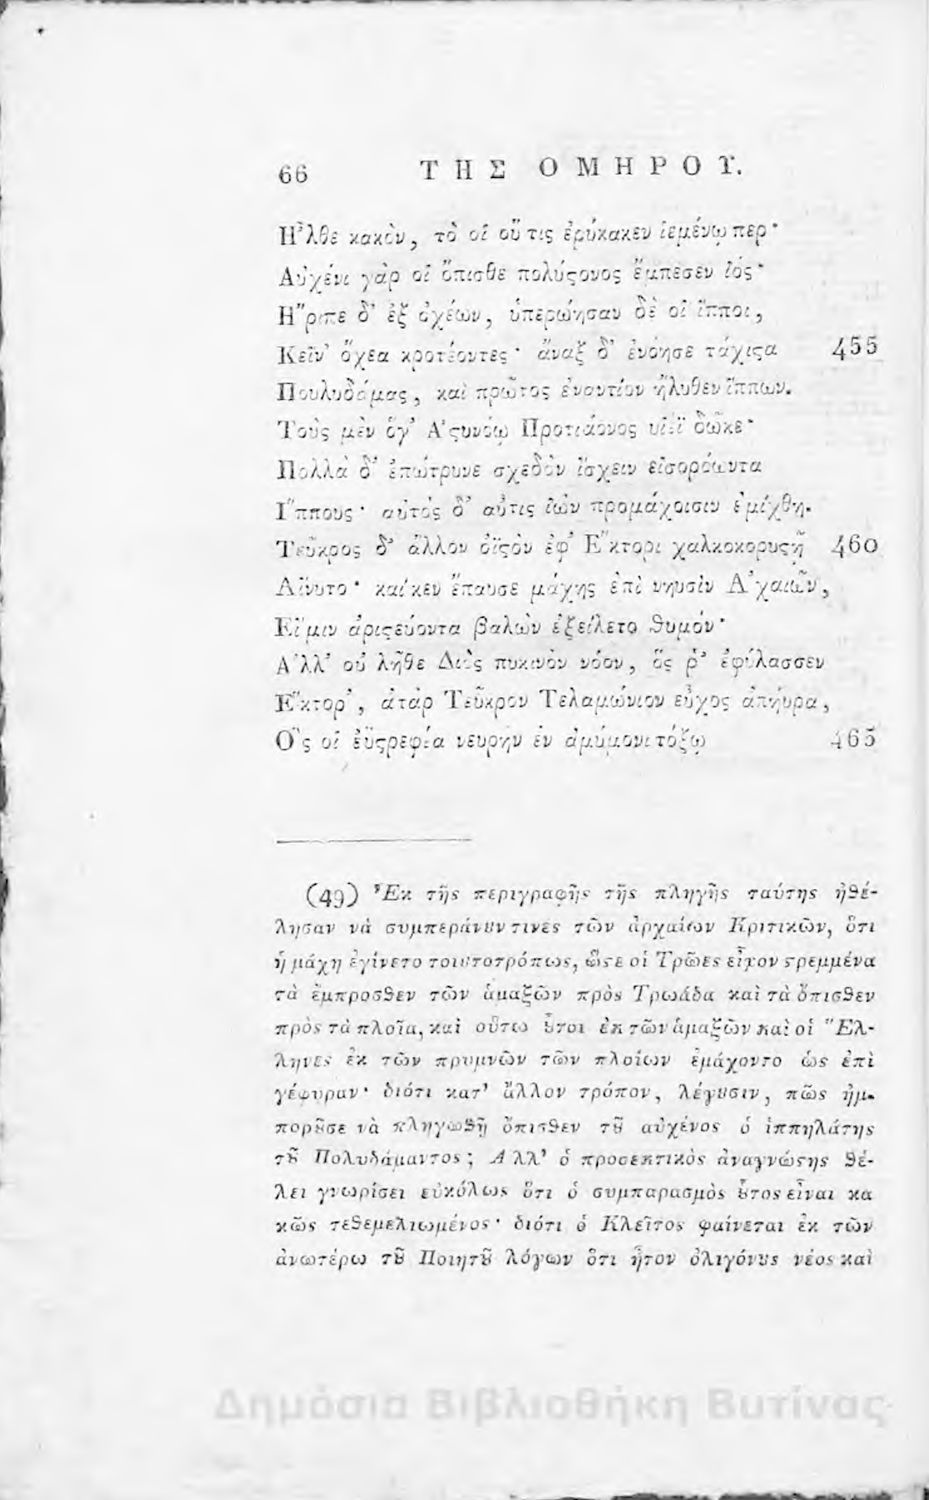 66 ΤΗΣ ΟΜΗΡΟΥ.
Η῏λθε κακὸν, τό οἱ οὔ τις ἐρύκακεν ἱεμένῳ περ·
Αὐχένι γάρ οἱ ὄπισθε πολύϛονος ἔμπεσεν ἰός·
Η῎ριπε δ' ἐξ ὀχέων, ὑπερώησαν δέ οἱ ἵπποι,
Κείν' ὄχεα κροτέοντες· ἄναξ δ' ἐνόησε τάχιϛα 455
Πουλυδάμας, καὶ πρῶτος ἐναντίον ἤλυθεν ἵππων.
Τοὺς μὲν ὅγ' Α᾿ϛυνόῳ Προτιάονος υἱέϊ δῶκε·
Πολλὰ δ' ἐπώτρυνε σχεδὸν ἴσχειν εἰσορόωντα
Ι῞ππους· αὐτὸς δ' αὖτις ἰὼν προμάχοισιν ἐμίχθη.
Τεῦκρος δ' ἄλλον ὀϊϛὸν ἐφ' Ε῞κτορι χαλκοκορυϛῇ 460
Αἴνυτο· καί κεν ἔπαυσε μάχης ἐπὶ νηυσὶν Α᾿χαιῶν,
Εἴ μιν ἀριϛεύοντα βαλὼν ἐξείλετο θυμόν·
Α᾿λλ' οὐ λῆθε Διὸς πυκινὸν νόον, ὅς ῥ' ἐφύλασσεν
Ε῞κτορ', ἀτὰρ Τεῦκρον Τελαμώνιον εὖχος ἀπηύρα,
Ο῞ς οἱ ἐϋϛρεφέα νευρὴν ἐν ἀμύμονι τόξῳ 465
(49) Ἐκ τῆς περιγραφῆς τῆς πληγῆς ταύτης ἠθέ-
λησαν νὰ συμπεράνȣν τινὲς τῶν ἀρχαίων Κριτικῶν, ὅτι
ἡ μάχη ἐγίνετο τοιȣτοτρόπως, ὥϛε οἱ Τρῶες εἶχον ϛρεμμένα
τὰ ἔμπροσθεν τῶν ἁμαξῶν πρὸς Τρωάδα καὶ τὰ ὄπισθεν
πρὸς τὰ πλοῖα, καὶ οὕτω ȣ̔͂τοι ἐκ τῶν ἁμαξῶν καὶ οἱ Ἕλ-
ληνες ἐκ τῶν πρυμνῶν τῶν πλοίων ἐμάχοντο ὡς ἐπὶ
γέφυραν· διότι κατ' ἄλλον τρόπον, λέγȣσιν, πῶς ἠμ-
πορȣ͂σε νὰ πληγωθῇ ὄπισθεν τȣ͂ αὐχένος ὁ ἱππηλάτης
τȣ͂ Πολυδάμαντος; Ἀλλ' ὁ προσεκτικὸς ἀναγνώϛης θέ-
λει γνωρίσει εὐκόλως ὅτι ὁ συμπαρασμὸς ȣ̔͂τος εἶναι κα
κῶς τεθεμελιωμένος· διότι ὁ Κλεῖτος φαίνεται ἐκ τῶν
ἀνωτέρω τȣ͂ Ποιητȣ͂ λόγων ὅτι ἦτον ὀλιγόνȣς νέος καὶ
Δημόσια Βιβλιοθήκη Βυτίνας